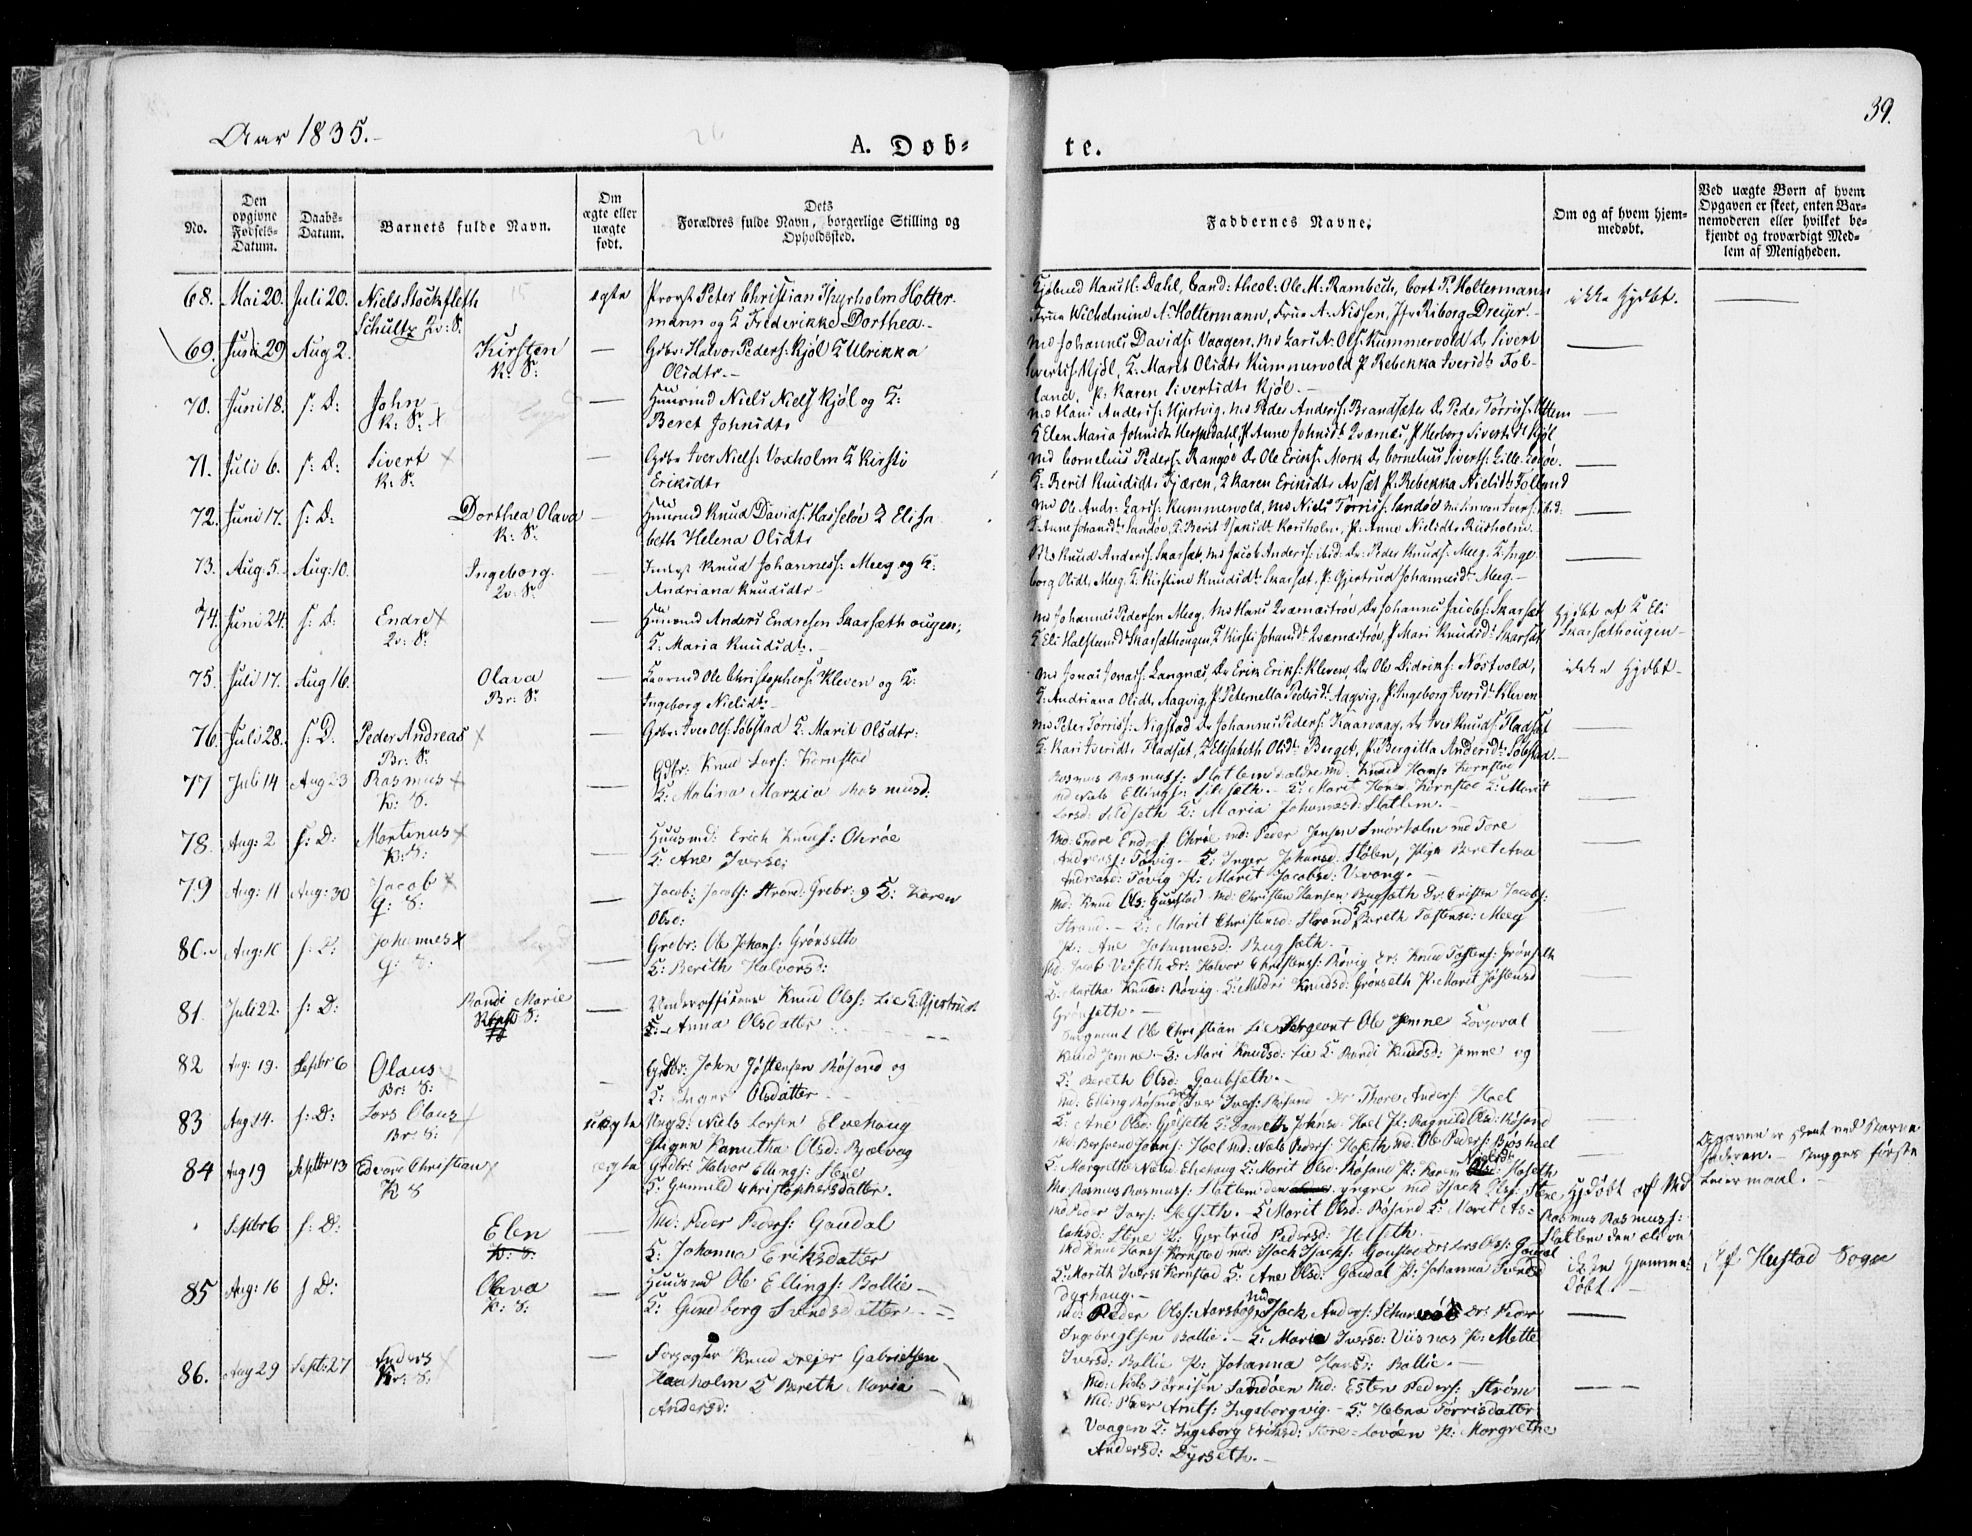 39.
Aar 1835.
A. Døb-
te.
No.
Den opgivne Fødsels-Datum.
Daabs-Datum.
Barnets fulde Navn.
Om ægte eller uægte født.
Dets Forældres fulde Navn, borgerlige Stilling og Opholdssted.
Faddernes Navne.
Om og af hvem hjemmedøbt.
Ved uægte Børn af hvem Opgaven er skeet, enten Barnemoderen eller hvilket bekjendt og troværdigt Medlem af Menigheden.
68. Mai 20. Juli 20. Niels Stockfleth ægte Provst Peter Christian Thyrholm Holter-
Schultz Qv: S: mann og K Frederikke Dorthea
Dahl, Cand: theol: Ole M: Rambech, Cort P. Holtermann
Frue Wilhelmine A. Holtermann, Frue A. Nissen, Jfr Riborg Dreyer.
ikke Hjdbt.
69. Juni 29. Aug 2. Kirsten — Gdbr: Halvor Peders: Kjøl K Ulrikka
K: S: Olsdtr.
Md Johannes Davids: Vaagen, Kummervold Dr Sivert
Kjøl, K: Marit Olsdtr Kummervold P: Rebekka Iversdtr Fol-
land. P: Karen Sivertsdtr Kjøl.
70. Juni 18. s: D: John — Huusmd Niels Niels: Kjøl og K:
K: S: Beret Johnsdtr
Md Hans Anders: Hjertvig, Md Peder Anders: Brandsæter Dr Peder Tørris:
K Elen Maria Johnsdtr P: Anne Johnsdtr Qværnes P: Herborg Sivertsdtr Kjøl
71. Juli 6. s: D: Sivert — Gdbr Iver Niels: Voxholm K Kirsti
K: S: Eriksdtr
Md Cornelius Peders: Rangøe Dr Ole Eriks: Mork Dr Cornelius Siverts: Lille
K: Berit Knudsdtr Fjæren, K Karen Eriksdtr P: Rebekka Nielsdtr Folland
72. Juni 17. s: D: Dorthea Olava — Huusmd Knud Davids: Hasseløe K Elisa-
K: S: beth Helena Olsdtr
Md Ole Andr: Lars: Kummervold, Md Niels Tørris: Sandøe
K: Anne Johansdtr Sandøe, K: Berit P: Anne Nielsdtr Riisholm.
73. Aug. 5. Aug: 10. Ingeborg. — Knud Johanness: Meeg og K:
Qv: S: Andriana Knudsdtr
Md Knud Anders: Skarsæt, Md Jacob Anders: ibid: Dr Peder Knuds: Meeg. K: Inge-
borg Olsdtr Meeg. K: Kirstine Knudsdtr Skarsæt, P: Gjertrud Johannesdtr Meeg.
74. Juni 24. s: D: Endre — Huusmd Anders Endresen Skarsæthougen,
Qv: S: K: Maria Knudsdtr.
Md Johannes Pedersen Meeg, Md Hans Qværnestrøe, Dr Johannes Jacobs: Skarsæt
K Eli Halsteensd Skarsæthougen, K Kirsti Johansdtr Qværnestrøe, P: Mari Knudsdtr Skarsæt
Hjdbt af K Eli
Skarsæthougen
75. Juli 17. Aug 16. Olava — Ole Christophers: Kleven og K:
Br: S: Ingeborg Nielsdtr
Md Jonas Jonas: Langnæs, Dr Erik Eriks: Kleven, Dr Ole Didriks: Nøstvold,
K: Andriana Olsdtr Aagvig, P: Peternella Pedersdtr Aagvig, P: Ingeborg Iversdtr Kleven
ikke Hjdbt
76. Juli 28. s: D. Peder Andreas — Gdbr: Iver Ols: Søbstad K: Marit Olsdtr:
Br: S:
Md Peter Tørris: Nigstad Dr Johannes Peders: Dr Iver Knuds: Fladsæt
K: Kari Iversdtr Fladsæt, K Elisabeth Olsdtr Berget, P: Bergitta Andersdtr Søbstad.
77 Juli 14 Aug 23 Rasmus — Gdbr: Knud Lars: Kornstoe
K: S: K: Malina Maria Rasmusd:
Rasmus Rasmuss: Slatlem d ældre, Md: Knud Hans: Kornstoe
Md Niels Ellings: Silseth. K: Marit Hansd Kornstoe K: Marit
Larsd: Silseth K: Maria Johannesd: Slatlem.
78. Aug: 2 s: D: Martinus — Huusmd: Erich Knuds: Ohrøe
K: S: K: Ane Iversd:
Md: Endre Endres: Ohrøe md: Peder Jensen Smørholm md Tore
Andreas: Tøvig K: Inger Johansd: Stølen, Pige Beret Ana
Andreasd: Tøvig P: Marit Jacobsd: Vevang.
79 Aug: 11 Aug: 30 Jacob — Jacob: Jacobs: Strand: Grdbr: og K: Karen
Q: S: Olsd:
Md: Knud Ols: Md: Christen Hansen Bugseth Dr: Cristen Jacobs:
Strand. K: Marit Christensd: Strand K Bereth Tostensd: Meeg
P: Ane Johannesd: Bugseth.
80. Aug: 10 s: D: Johannes — Grdbr: Ole Johans: Grønseth
Q: S: K: Berith Halvorsd:
Md: Jacob Veiseth Dr: Halvor Christens: Røvig Dr: Knud Tostens: Grønseth
K: Martha Knudsd: Røvig. K: Mildri Knudsd: Grønseth P: Marit Jøstensd
Grønseth.
81. Juli 22. s: D: Randi Marie — Underofficeer Knud Olss: Lie K: Gjertrud
S: Anna Olsdatter
Sergeant Ole Christian Lie Sergeant Ole Jemne Korporal
Knud Jemne. K: Mari Knudsd: Lie K Randi Knudsd: Jemne og
K: Bereth Olsd: Gaubseth.
82 Aug: 19. Septbr 6 Olaus — Grdbr: John Jøstensen Røsand og
Br: S: K: Inger Olsdatter
Md: Elling Røsand Iver Ivers: Røsand Dr Thore Anders: Hoel
K: Ane Olsd: Gjelseth K: Johnsd: Hoel P: Ragnild Olsd: Røsand
83 Aug 14. s: D: Lars Olaus uægte Ungk: Niels Larsen Elvehaug
Br: S: Pigen Kanutha Olsd: Bjølvag
Md: Johns: Hoel md: Niels Peders: Hoseth md: Ole Peders:
K: Margrethe Nielsd: Elvehaug K: Marit Olsd: Røsand P: Karen Nielsd: Hoseth
Opgaven er skeet ved Barne-
faderen. Begges første
Leiermaal.
84 Aug 19 Septbr 13 Edvard Christian ægte Grdbr: Halvor Ellings: Stene
K S K: Gunnild Christophersdatter.
Md: Rasmus Rasmuss: Slatlem den yngre md Isack Ols: Stene
Md Peder Ivers: K Marit Olsd: Røsand K: Marit As-
laksd: Stene P: Gjertrud Pedersd: Helseth.
Hjdøbt af Md
Rasmus Rasmuss:
Slatlem den ældre
Septbr 6 s: D: Elen — Md: Peder Peders: Gaudal
K: S: K: Johanna Eriksdatter
Md Knud Hans: Kornstad md: Isach Isachs: Dr: Lars Ols: Gaudal
K: Morith Ivers: Kornstad K: Ane Olsd: Gaudal P: Johanna Svendsd
Dyrhaug.
ikke Hjemme-
døbt.
Af Hustad Sogn
85 Aug: 16 s D: Olava — Huusmd Ole Ellings: Bollie
K: S: K: Gundborg Svendsdatter
Md: Peder Ols: Aarsbog, md Isack Anders: Dr: Peder
Ingebrigtsen Bollie. K: Maria Iversd: Viisnes P: Mette
Iversd: Bollie P: Johanna Hansd: Bollie.
86. Aug 29 Septr: 27 Anders — Forpagter Knud Drejer Gabrielsen
Kr: S: K Bereth Maria
Andersd:
Md: Niels Tørrisen Sandøen Md: Esten Peders: Strøm
Md: Peder Arnts: Ingeborgvig. K: Helena Tørrisdatter
Vaagen K: Ingeborg Eriksd: Store-Lovøen P: Margrethe
Andersd: Dyrseth.